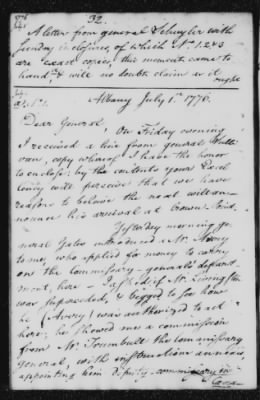 32.
A letter from general Schuyler with
sundry inclosures, of which No. 1.2 & 3
are exact copies, this moment came to
hand, & will no doubt, claim as it
ought
Albany July 1st 1776.
Dear General,
On Friday evening
I received a line from general Sulli-
van, copy whereof I have the honor
to enclose; by the contents your Excel
lency will perceive that we have
reason to believe the next will an-
nounce his arrival at Crown Point.
Yesterday morning ge-
neral Gates introduced a Mr. Avery
to me, who applied for money to carry
on the Commissary-general's depart-
ment, here — I asked if Mr. Livingston
was superceded, & begged to see how
he (Avery) was authorized to act
here; he showed me a commission
from Mr. Trumbull the commissary
general, with instructions annexed,
appointing him deputy-commissary in
Cana-